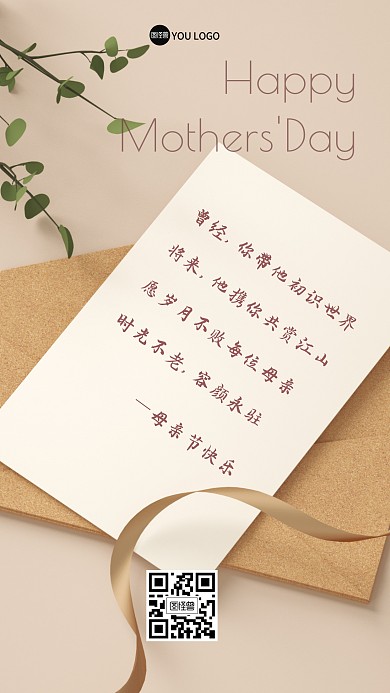 图怪兽 YOU LOGO
Happy
Mothers'Day
曾经，你带他初识世界
将来，他携你共赏江山
愿岁月不败每位母亲
时光不老，容颜永驻
—母亲节快乐
图怪兽